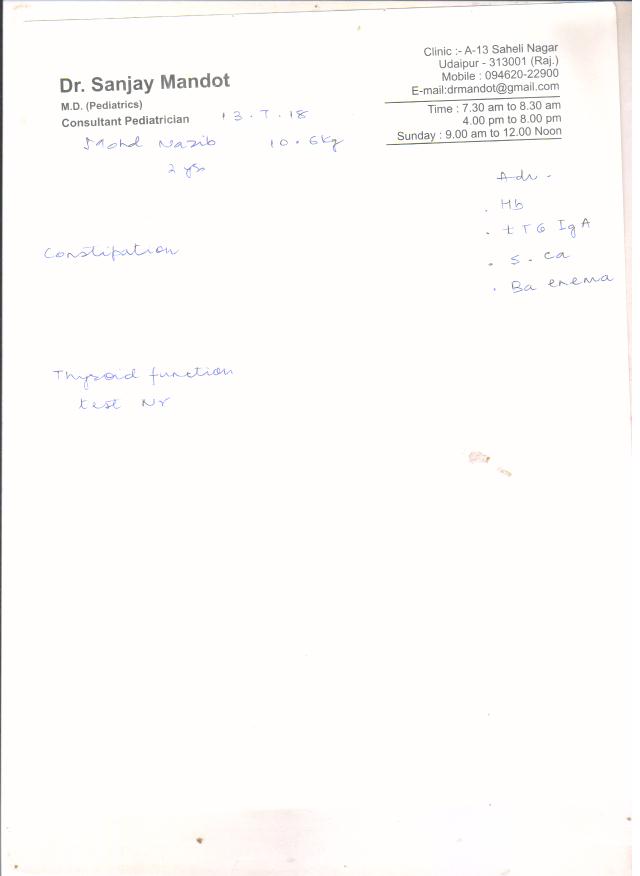 Dr. Sanjay Mandot
M.D. (Pediatrics)
Consultant Pediatrician
Clinic :- A-13 Saheli Nagar
Udaipur - 313001 (Raj.)
Mobile : 094620-22900
E-mail:drmandot@gmail.com
Time : 7.30 am to 8.30 am
4.00 pm to 8.00 pm
Sunday : 9.00 am to 12.00 Noon
13.7.18
Mohd Nazib 10.6kg
2 yrs
Adv -
. Hb
. tTG IgA
. S. Ca
. Ba enema
Constipation
Thyroid function
test Nr